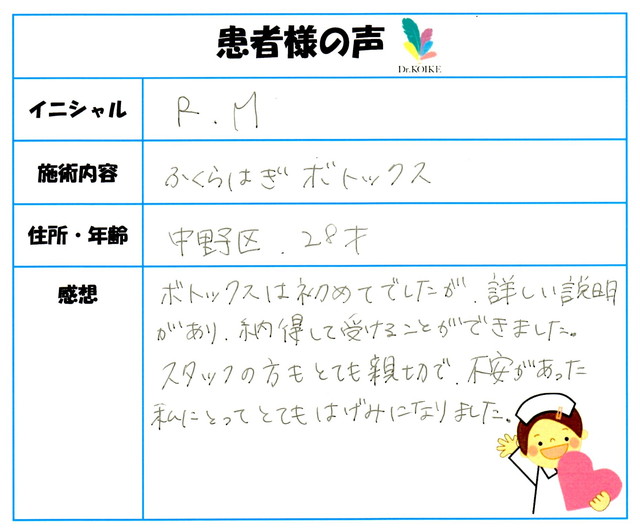 患者様の声
Dr.KOIKE
イニシャル R.M
施術内容 ふくらはぎボトックス
住所・年齢 中野区.28才
感想 ボトックスは初めてでしたが、詳しい説明
があり、納得して受けることができました。
スタッフの方もとても親切で、不安があった
私にとってとてもはげみになりました。